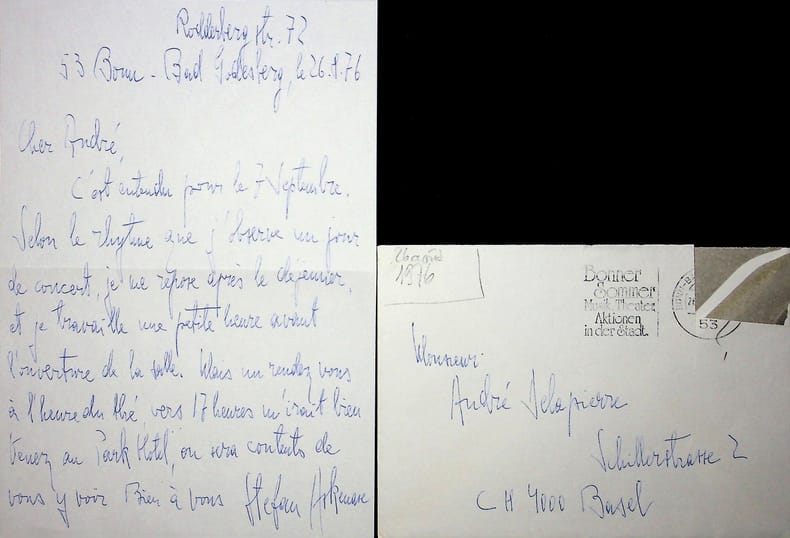 Rodderbergstr. 72
53 Bonn - Bad Godesberg, le 26.8.76
Cher André,
C'est entendu pour le 7 Septembre.
Selon le rhytme que j'observe un jour
de concert, je me repose après le déjeuner,
et je travaille une petite heure avant
l'ouverture de la salle. Mais un rendez vous
à l'heure du thé, vers 17 heures m'irait bien
Venez au Park Hotel, on sera contents de
vous y voir Bien à vous Stefan Askenase
26 août
1976
Bonner
Sommer
Musik Theater
Aktionen
in der Stadt.
53
Monsieur
André Delapierre
Schillerstrasse 2
CH 4000 Basel